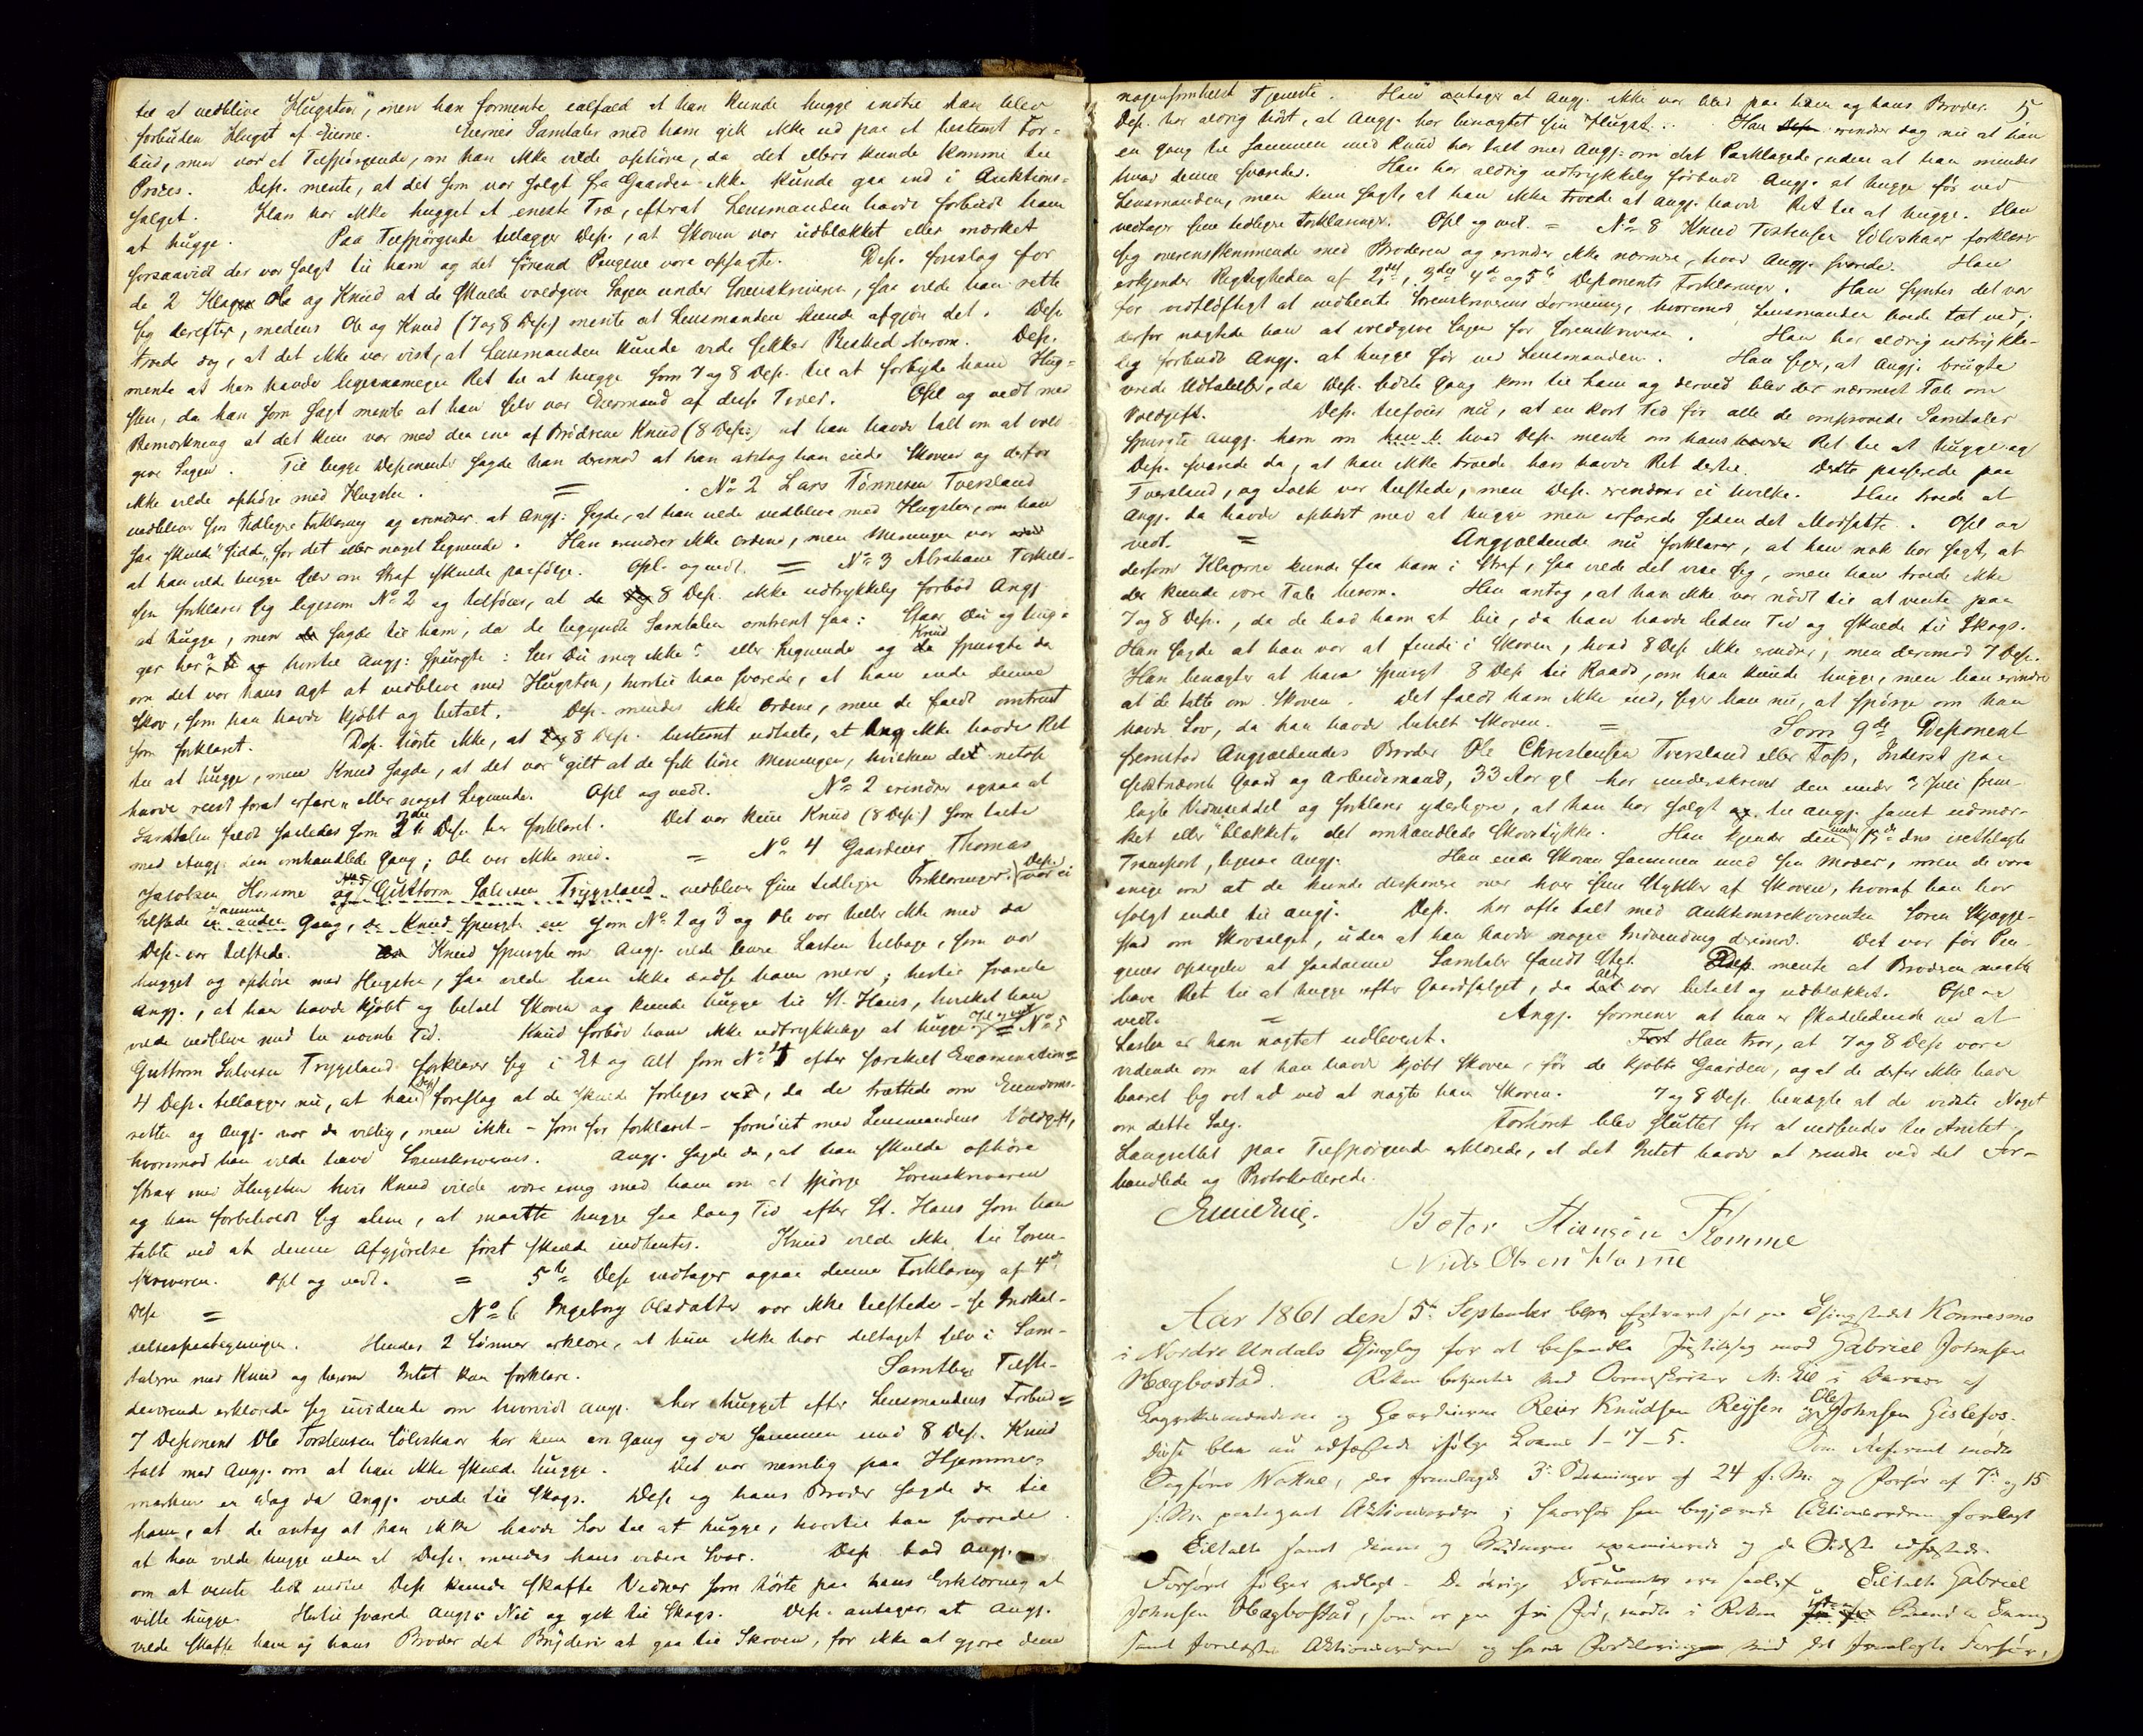 til at vedblive Hugsten", men han formente ialfald at han kunde hugge indtil han blev
forbuden Hugst af Eierne. Eiernes Samtaler med ham gik ikke ud paa et bestemt For-
bud, men var et Tilspørgende, om han ikke vilde ophøre, da det ellers kunde komme til
Proces. Dep. mente, at det som var solgt fra Gaarden ikke kunde gaa ind i Auktions-
salget. Han har ikke hugget et eneste Træ, efterat Lensmanden havde forbudt ham
at hugge. Paa Tilspørgende tillægger Dep., at Skoven var udblækket eller mærket
forsaavidt der var solgt til ham og det førend Pengene vare opsagte. Dep. foreslog for
de 2 Klagere Ole og Knud at de skulde voldgive Sagen under Sorenskriveren, saa vilde han rette
sig derefter, medens Ole og Knud (7 og 8 Dep.) mente at Lensmanden kunde afgjøre det. Dep.
troede dog, at det ikke var vist, at Lensmanden kunde vide sikker Besked herom. Dep.
mente at han havde ligesaamegen Ret til at hugge som 7 og 8 Dep. til at forbyde ham Hug-
sten, da han som sagt mente at han selv var Eiermand af disse Træer. Opl og vedt med
Bemærkning at det kun var med den ene af Brødrene Knud (8 Dep.) at han havde talt om at vold-
give Sagen. Til begge Deponenter sagde han derimod at han antog han eiede Skoven og derfor
ikke vilde ophøre med Hugsten. = No 2 Lars Tønnesen Tversland
vedbliver sin tidligere Forklaring og erindrer at Angj. sagde, at han vilde vedblive med Hugsten, om han
saa skulde "sidde" for det eller noget Lignende. Han erindrer ikke Ordene, men Meningen var
at han vilde hugge selv om Straf skulde paafølge. Opl. og vedt. = No 3 Abraham Torkild-
sen forklarer sig ligesom No 2 og tilføier, at 8 Dep. ikke udtrykkelig forbød Angj.
at hugge, men sagde til ham, da de begyndte Samtalen omtrent saa: Staar du og hug-
ger her? hvortil Angj: spurgte: Seer Du mig ikke? eller Lignende og Knud spurgte da
om det var hans Agt at vedblive med Hugsten, hvortil han svarede, at han eiede denne
Skov, som han havde kjøbt og betalt. Dep. mindes ikke Ordene, men de faldt omtrent
som forklaret. Dep. hørte ikke, at 8 Dep. bestemt udtalte, at Ang ikke havde Ret
til at hugge, men Knud sagde, at det var "gilt at de fik høre Meningen, hvilken de netop
havde reist forat erfare" eller noget Lignende. Opl og vedt. No 2 erindrer ogsaa at
Samtalen faldt saaledes som Dep. har forklaret. Det var kun Knud (8 Dep:) som talte
med Angj: den omhandlede Gang; Ole var ikke med. = No 4 Gaardeier Thomas
Jacobsen Homme og No 5 Guttorm Salvesen Trygsland vedbliver sine tidligere Forklaringer. Dep. var ei
tilstede samme Gang, som No 2 og 3 og Ole var heller ikke med da
Dep. var tilstede. Knud spurgte om Angj. vilde levere Lasten tilbage, som var
hugget og ophøre med Hugsten, saa vilde han ikke ændse ham mere; hertil svarede
Angj., at han havde kjøbt og betalt Skoven og kunde hugge til St. Hans, hvilket han
vilde vedblive med til nævnte Tid. Knud forbød ham ikke udtrykkelig at hugge. Opl og vedt = No 5
Guttorm Salvesen Trygsland forklarer sig i Et og Alt som No 4 efter særskilt Examination =
4 Dep. tillægger nu, at han foreslog at de skulde forliges, da de trættede om Eiendoms-
retten og Angj. var da villig, men ikke - som før forklaret - fornøiet med Lensmandens Voldgift,
hvorimod han vilde have Sorenskriverens. Angj. sagde da, at han skulde ophøre
strax med Hugsten hvis Knud vilde være enig med ham om at spørge Sorenskriveren
og han forbeholdt sig alene, at maatte hugge saa lang Tid efter St. Hans som han
tabte ved at denne Afgjørelse først skulde indhentes. Knud vilde ikke til Soren-
skriveren. Opl og vedt. = 5te Dep. vedtager ogsaa denne Forklaring af 4de
Dep = No 6 Ingeborg Olsdatter var ikke tilstede - se Indkal-
delsespaategningen. Hendes 2 Sønner erklære, at hun ikke har deltaget selv i Sam-
talerne med Knud og herom Intet kan forklare. Samtlige Tilste-
deværende erklærede sig uvidende om hvorvidt Angj. har hugget efter Lensmandens Forbud =
7 Deponent Ole Torstensen Sølvskaar har kun en Gang og da sammen med 8 Dep. Knud
talt med Angj. om at han ikke skulde hugge. Det var nemlig paa Hjemme-
marken en Dag da Angj. vilde til Skogs. Dep. og hans Broder sagde da til
ham, at de antog at han ikke havde Lov til at hugge, hvortil han svarede
at han vilde hugge uden at Dep. mindes hans videre Svar. Dep. bad Angj.
om at vente lidt indtil Dep kunde skaffe Vidner som hørte paa hans Erklæring at
ville hugge. Hertil svarede Angj: Nei og gik til Skogs. Dep. antager at Angj.
vilde skaffe ham og hans Broder det Bryderi at gaa til Skoven, for ikke at gjøre dem
nogensomhelst Tjeneste. Han antager at Angj. ikke var vred paa ham og hans Broder. 5
Dep. har aldrig hørt, at Angj. har benægtet sin Hugst. Han erindrer dog nu at han
en Gang til sammen med Knud har talt med Angj. om det Paaklagede, uden at han mindes
hvad denne svarede. Han har aldrig udtrykkelig forbudt Angj. at hugge før ved
Lensmanden, men kun sagt, at han ikke troede at Angj. havde Ret til at hugge. Han
vedtager sine tidligere Forklaringer. Opl og vedt. = No 8 Knud Tostensen Sølvskaar forklarer
sig overensstemmende med Broderen og erindrer ikke nærmere, hvad Angj. svarede. Han
erkjender Rigtigheden af 2den, 3die, 4de og 5te Deponents Forklaringer. Han syntes det var
for vidtløftigt at indhente Sorenskriverens Formening, hvorimod Lensmanden boede tæt ved;
derfor nægtede han at voldgive Sagen for Sorenskriveren. Han har aldrig udtrykke-
lig forbudt Angj. at hugge før ved Lensmanden. Han siger, at Angj. brugte
vrede Udtalelser, da Dep. sidste Gang kom til ham og derved blev der nærmest Tale om
Voldgift. Dep. tilføier nu, at en kort Tid før alle de omprovede Samtaler
spurgte Angj. ham om hvad Dep. mente om hans Ret til at hugge og
Dep. svarede da, at han ikke troede han havde Ret dertil. Dette passerede paa
Tversland, og Folk var tilstede, men Dep. erindrer ei hvilke. Han troede at
Angj. da havde ophørt med at hugge men erfarede siden det Modsatte. Opl og
vedt. = Angjældende nu forklarer, at han nok har sagt, at
dersom Klagerne kunde faa ham i Straf, saa vilde det vise sig, men han troede ikke
der kunde være Tale herom. Han antog, at han ikke var nødt til at vente paa
7 og 8 Dep., da de bad ham at bie, da han havde liden Tid og skulde til Skogs.
Han sagde at han var at finde i Skoven, hvad 8 Dep ikke erindrer, men derimod 7 Dep.
Han benægter at have spurgt 8 Dep til Raads, om han kunde hugge, men han erindrer
at de talte om Skoven. Det faldt ham ikke ind, siger han nu, at spørge om han
havde Lov, da han havde betalt Skoven. = Som 9de Deponent
fremstod Angjældendes Broder Ole Christensen Tversland eller Foss, Inderst paa
sidstnævnte Gaard og Arbeidsmand, 33 Aar gl har underskrevet den under 2 Juli frem-
lagte Udmeddel og forklarer yderligere, at han har solgt til Angj. samt udmær-
ket eller "blækket" det omhandlede Skovstykke. Han kjender den under ds irettelagte
Transport, ligesaa Angj. Han eiede Skoven sammen med sin Moder, men de vare
enige om at de kunde disponere over hver sine Stykker af Skoven, hvoraf han har
solgt endel til Angj. Dep. har ofte talt med Auktionsrekvirenten Søren Skjegge-
stad om Skovsalget, uden at han havde nogen Indvending derimod. Det var før Pen-
genes Opsigelse at saadanne Samtaler fandt Sted. Dep. mente at Broderen maatte
have Ret til at hugge efter Gaardsalget, da alt var betalt og udblækket. Opl og
vedt. = Angj. formener at han er skadelidende ved at
Lasten er ham nægtet udleveret. Han tror, at 7 og 8 Dep vare
vidende om at han havde kjøbt Skoven, før de kjøbte Gaarden, og at de derfor ikke have
baaret sig ret ad ved at nægte ham Skoven. 7 og 8 Dep. benægte at de vidste Noget
om dette Salg. Forhøret blev sluttet for at indsendes til Amtet.
Laugrettet paa Tilspørgende erklærede, at det Intet havde at erindre ved det For-
handlede og Protokollerede.
Peter Stiansøn Homme
Niels Olsen Homme
Aar 1861 den 5te September blev Extraret sat paa Thingstedet Konnesmo
i Nordre Undals Thinglag for at behandle Justitssag mod Gabriel Johnsen
Hægbostad. Retten betjentes med Sorenskriver M. Lie i Overvær af
Laugrettesmændene og Gaardeierne Reier Knudsen Reysen og Ole Johnsen Gislefos.
Disse blev nu edfæstede ifølge Lovens 1-7-5. Som Aktor mødte
Sagfører Wattne, der fremlagde 3 Stevninger af 24 f. M. og Forhør af 7 og 15
f. M. paategnet Aktionsordre; hvorfor han begjærede Aktionsordren forelagt
Tiltalte samt denne og Vidnerne examinerede og de Sidste edfæstede.
Forhøret følger vedlagt. De øvrige Documenter ere saal. Tiltalte Gabriel
Johnsen Hægbostad, som er paa fri Fod, mødte i Retten
samt forelagdes Aktionsordren og hans Forklaring ved det fremlagte Forhør,